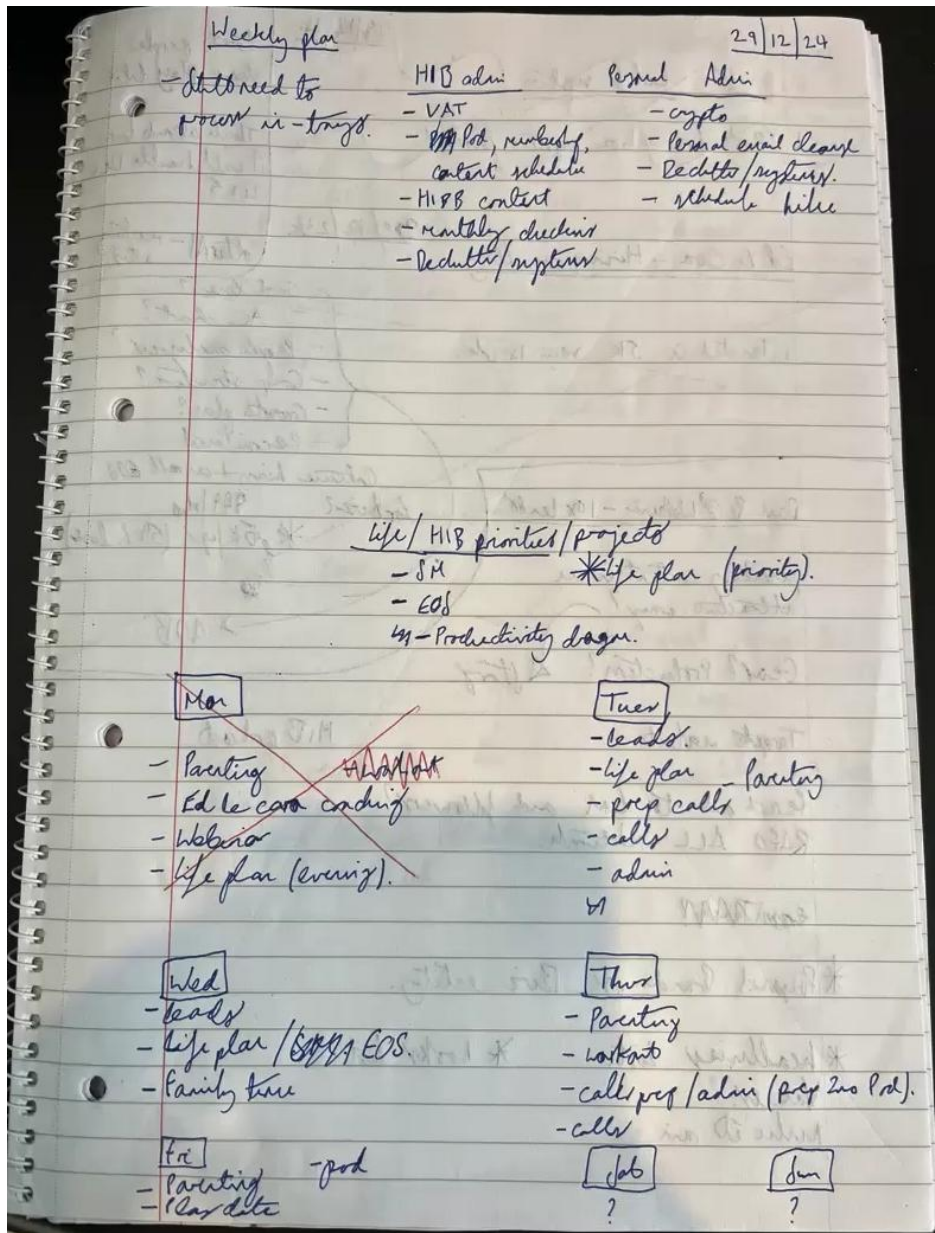 Weekly plan
29/12/24
- Still need to
process in-trays.
HIB admin
- VAT
- Pod, membership,
content schedule
- HIBB content
- monthly checkins
- Declutter/systems
Personal Admin
- crypto
- Personal email cleanse
- Declutter/systems.
- schedule hike
Life/HIB priorities/projects
- SM
- EOS
- Productivity
*Life plan (priority).
Mon
- Parenting
- Ed le cara coaching
- Webinar
- Life plan (evening).
Tues
- leads.
- life plan - Parenting
- prep calls
- calls
- admin
Wed
- leads
- Life plan / EOS.
- Family time
Thur
- Parenting
- workout
- calls prep/admin (prep 2no Pod).
- calls
Fri
- Parenting - pod
- Play date
Sat
?
Sun
?